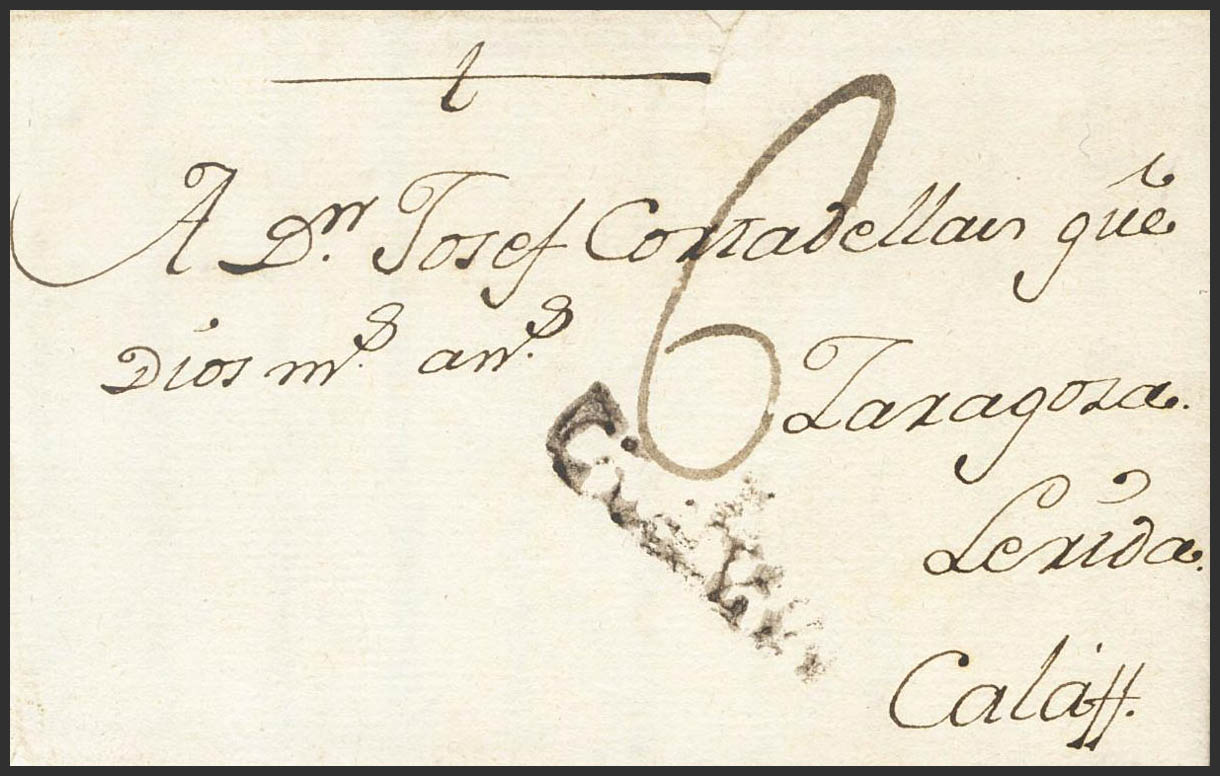 A D.ⁿ Josef Cortadellas que
Dios m.ˢ an.ˢ
6
Zaragoza.
Lerida.
Calaff.